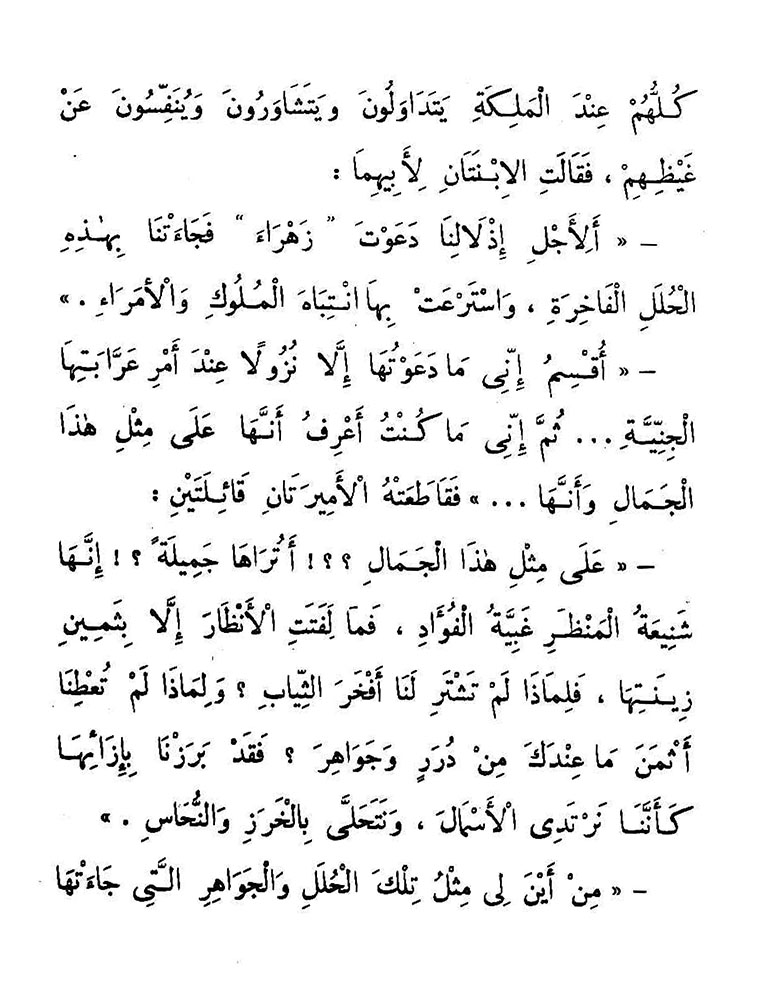 كُلُّهُمْ عِنْدَ الْمَلِكَةِ يَتَدَاوَلُونَ وَيَتَشَاوَرُونَ وَيُنَفِّسُونَ عَنْ
غَيْظِهِمْ ، فَقَالَتِ الِابْنَتَانِ لِأَبِيهِمَا :
– « أَلِأَجْلِ إِذْلَالِنَا دَعَوْتَ " زَهْرَاءَ " فَجَاءَتْنَا بِهٰذِهِ
الْحُلَلِ الْفَاخِرَةِ ، وَاسْتَرْعَتْ بِهَا انْتِبَاهَ الْمُلُوكِ وَالْأُمَرَاءِ . »
– « أُقْسِمُ إِنِّى مَا دَعَوْتُهَا إِلَّا نُزُولًا عِنْدَ أَمْرِ عَرَّابَتِهَا
الْجِنِّيَّةِ ... ثُمَّ إِنِّى مَا كُنْتُ أَعْرِفُ أَنَّهَا عَلَى مِثْلِ هٰذَا
الْجَمَالِ وَأَنَّهَا ... » فَقَاطَعَتْهُ الْأَمِيرَتَانِ قَائِلَتَيْنِ :
– « عَلَى مِثْلِ هٰذَا الْجَمَالِ ؟؟! أَتُرَاهَا جَمِيلَةً ؟! إِنَّهَا
شَنِيعَةُ الْمَنْظَرِ غَبِيَّةُ الْفُؤَادِ ، فَمَا لَفَتَتِ الْأَنْظَارَ إِلَّا بِثَمِينِ
زِينَتِهَا ، فَلِمَاذَا لَمْ تَشْتَرِ لَنَا أَفْخَرَ الثِّيَابِ ؟ وَلِمَاذَا لَمْ تُعْطِنَا
أَثْمَنَ مَا عِنْدَكَ مِنْ دُرَرٍ وَجَوَاهِرَ ؟ فَقَدْ بَرَزْنَا بِإِزَائِهَا
كَأَنَّنَا نَرْتَدِى الْأَسْمَالَ ، وَنَتَحَلَّى بِالْخَرَزِ وَالنُّحَاسِ . »
– « مِنْ أَيْنَ لِى مِثْلُ تِلْكَ الْحُلَلِ وَالْجَوَاهِرِ الَّتِى جَاءَتْهَا